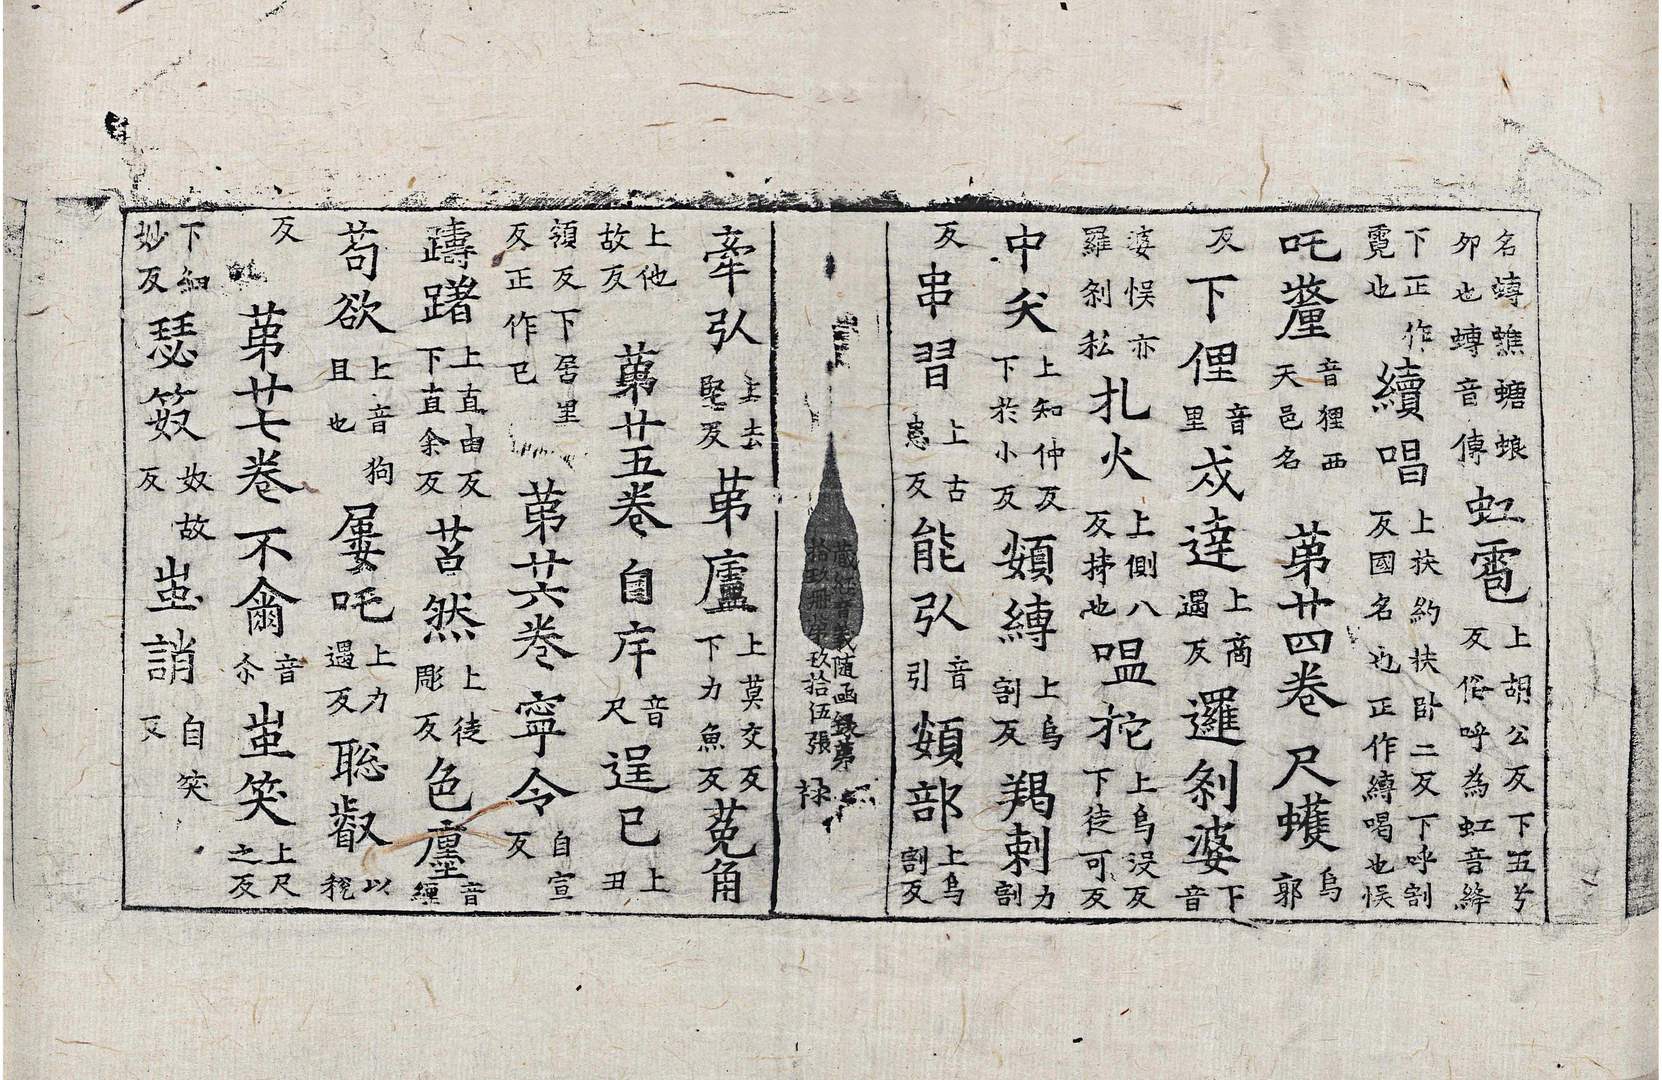 名蟳蟭螗蜋虹雹上胡公反下五兮
夘也蟳音傳反俗呼為虹音絳
下正作續唱上扶約扶卧二反下呼割
霓也反國名也正作縛喝也悮
吒𨤲音狸西天邑名第廿四卷尺蠖烏郭
反下俚音里戍達上商遏反邏剎婆下音
婆悮亦羅剎私扎火上側八反持也嗢柁上烏沒反下徒可反
中夭上知仲反下於小反頞縛上烏割反羯剌力割
反串習上古患反能引音引頞部上烏割反
藏經音義随函録第
拾玖冊第玖拾伍張
禄
牽引上去堅反茅廬上莫交反下力魚反菟角
上他故反第廿五卷自序音尺逞已上丑
領反下居里反正作已第廿六卷寧令自宣反
躊躇上直由反下直余反苕然上徒彫反色廛音纏
苟欲上音狗且也屢吒上力遇反聡叡以稅
反第廿七卷不龠音尒蚩笑上尺之反
下細妙反瑟笯奴故反蚩誚自笑反